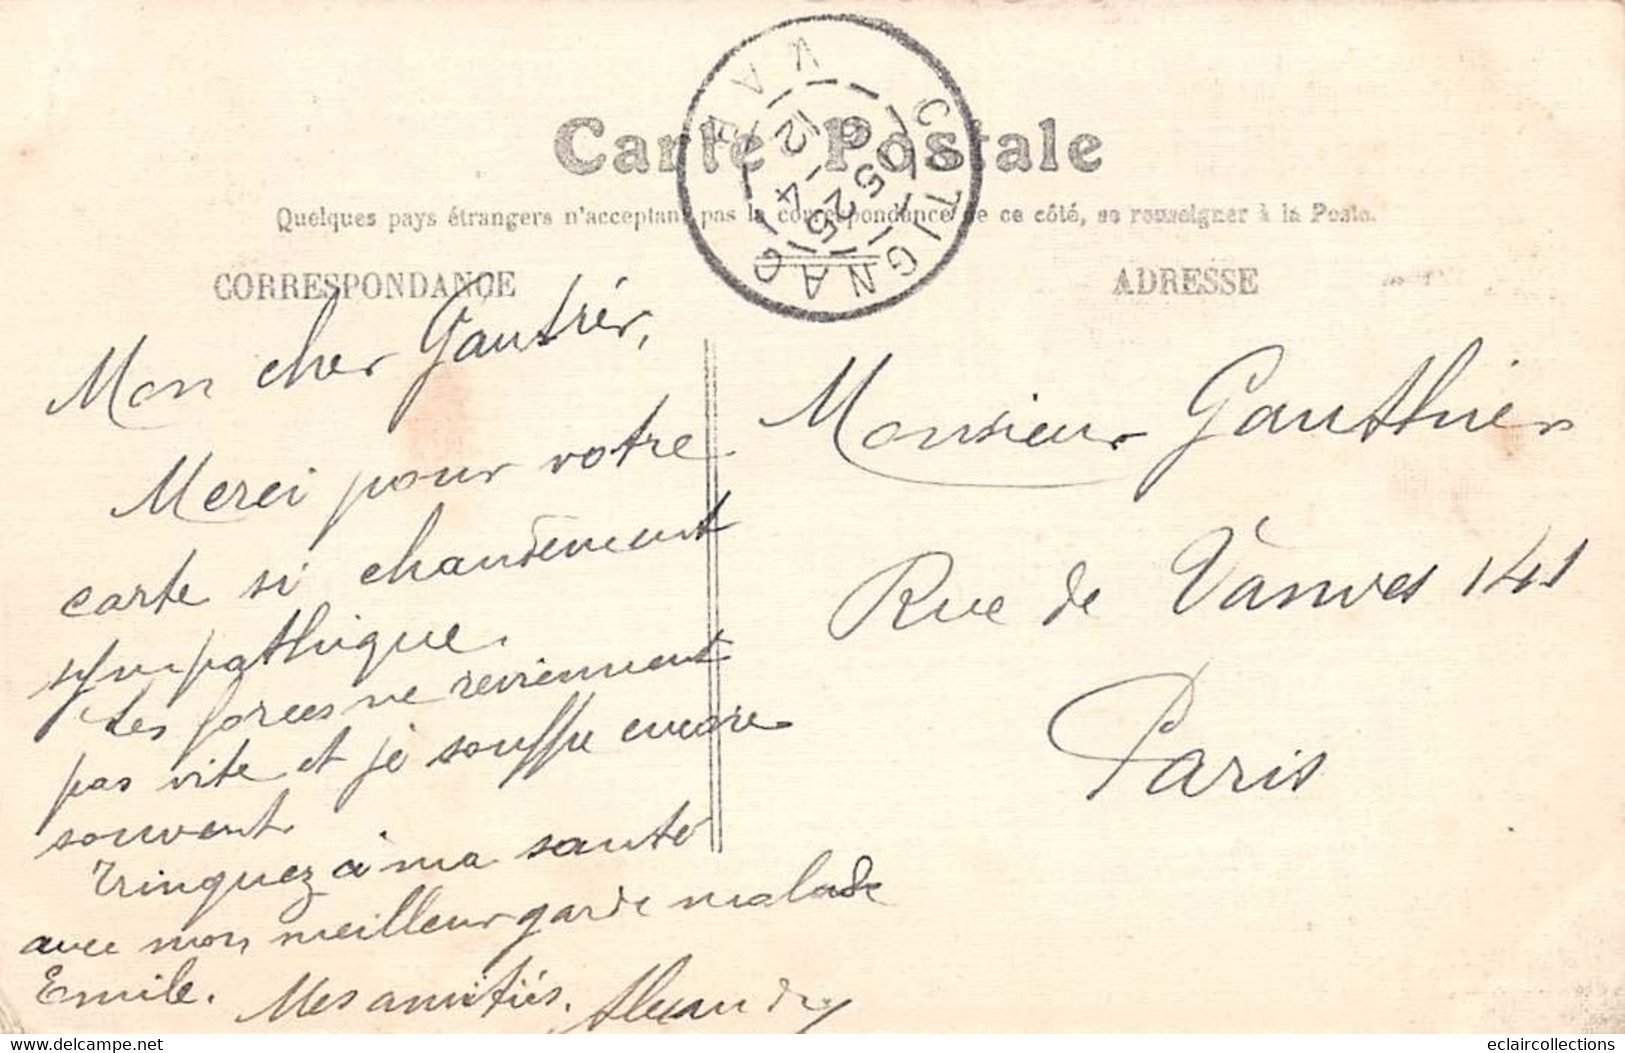 Carte Postale
Quelques pays étrangers n'acceptant pas la correspondance de ce côté, se renseigner à la Poste.
COTIGNAC VAR
12 - 4
25
CORRESPONDANCE
ADRESSE
Mon cher Gautier,
Merci pour votre
carte si chaudement
sympathique.
Les forces ne reviennent
pas vite et je souffre encore
souvent.
Trinquez à ma santé
avec mon meilleur garde malade
Emile. Mes amitiés.
Monsieur Gauthier
Rue de Vanves 141
Paris
eclaircollections
www.delcampe.net